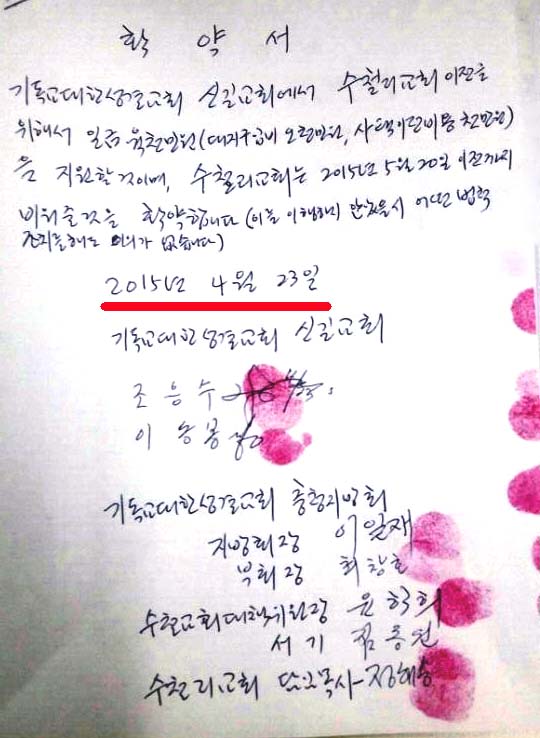 확 약 서
기독교대한성결교회 신길교회에서 수철리교회 이전을
위해서 일금 육천만원(대지구입비 오천만원, 사택이전비용 천만원)
을 지원할것이며, 수철리교회는 2015년 5월 20일 이전까지
비워줄것을 확약합니다 (이를 이행하지 않았을시 어떤 법적
조치를해도 이의가 없습니다)
2015년 4월 23일
기독교대한성결교회 신길교회
조 응 수
이 승 봉
기독교대한성결교회 충청지방회
지방회장 이일재
부회장 최창호
수철교회대책위원장 윤학희
서기 김동연
수철리교회 담임목사 정해송